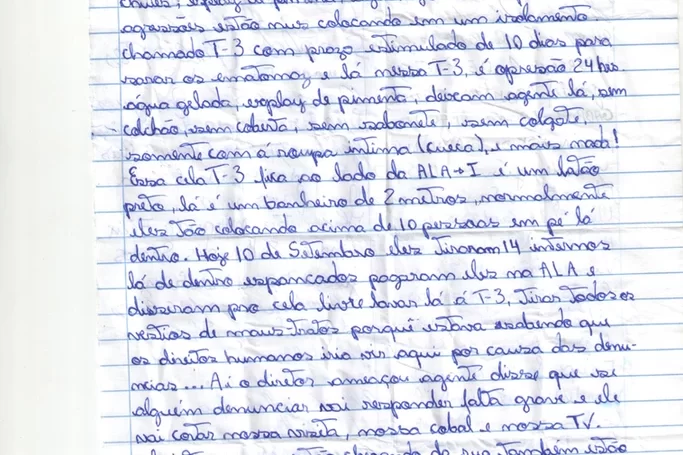 agressões estão nus colocando em um isolamento
chamado T-3 com prazo estimulado de 10 dias para
sarar os ematomoz e lá nessa T-3, é opressão 24 hrs
água gelada, esplay de pimenta, deixam agente lá, sem
colchão, sem coberta, sem sabonete, sem colgate,
somente com á roupa intima (cueca), e mais nada!
Essa cela T-3 fica ao lado da ALA→I é um latão
preto, lá é um banheiro de 2 metros, normalmente
eles tão colocando acima de 10 pessoas em pé lá
dentro. Hoje 10 de Setembro eles Tiraram 14 internos
lá de dentro espancados pegaram eles na ALA e
disseram pro cela livre lavar lá á T-3, Tirar Todos os
vestios de maus-tratos porquê estava sabendo que
os direitos humanos iria vir aqui por causa das denu-
ncias... Ai o diretor ameaçou agente disse que se
alguém denunciar vai responder falta grave e ele
vai cortar nossa visita, nossa cobal e nossa TV.